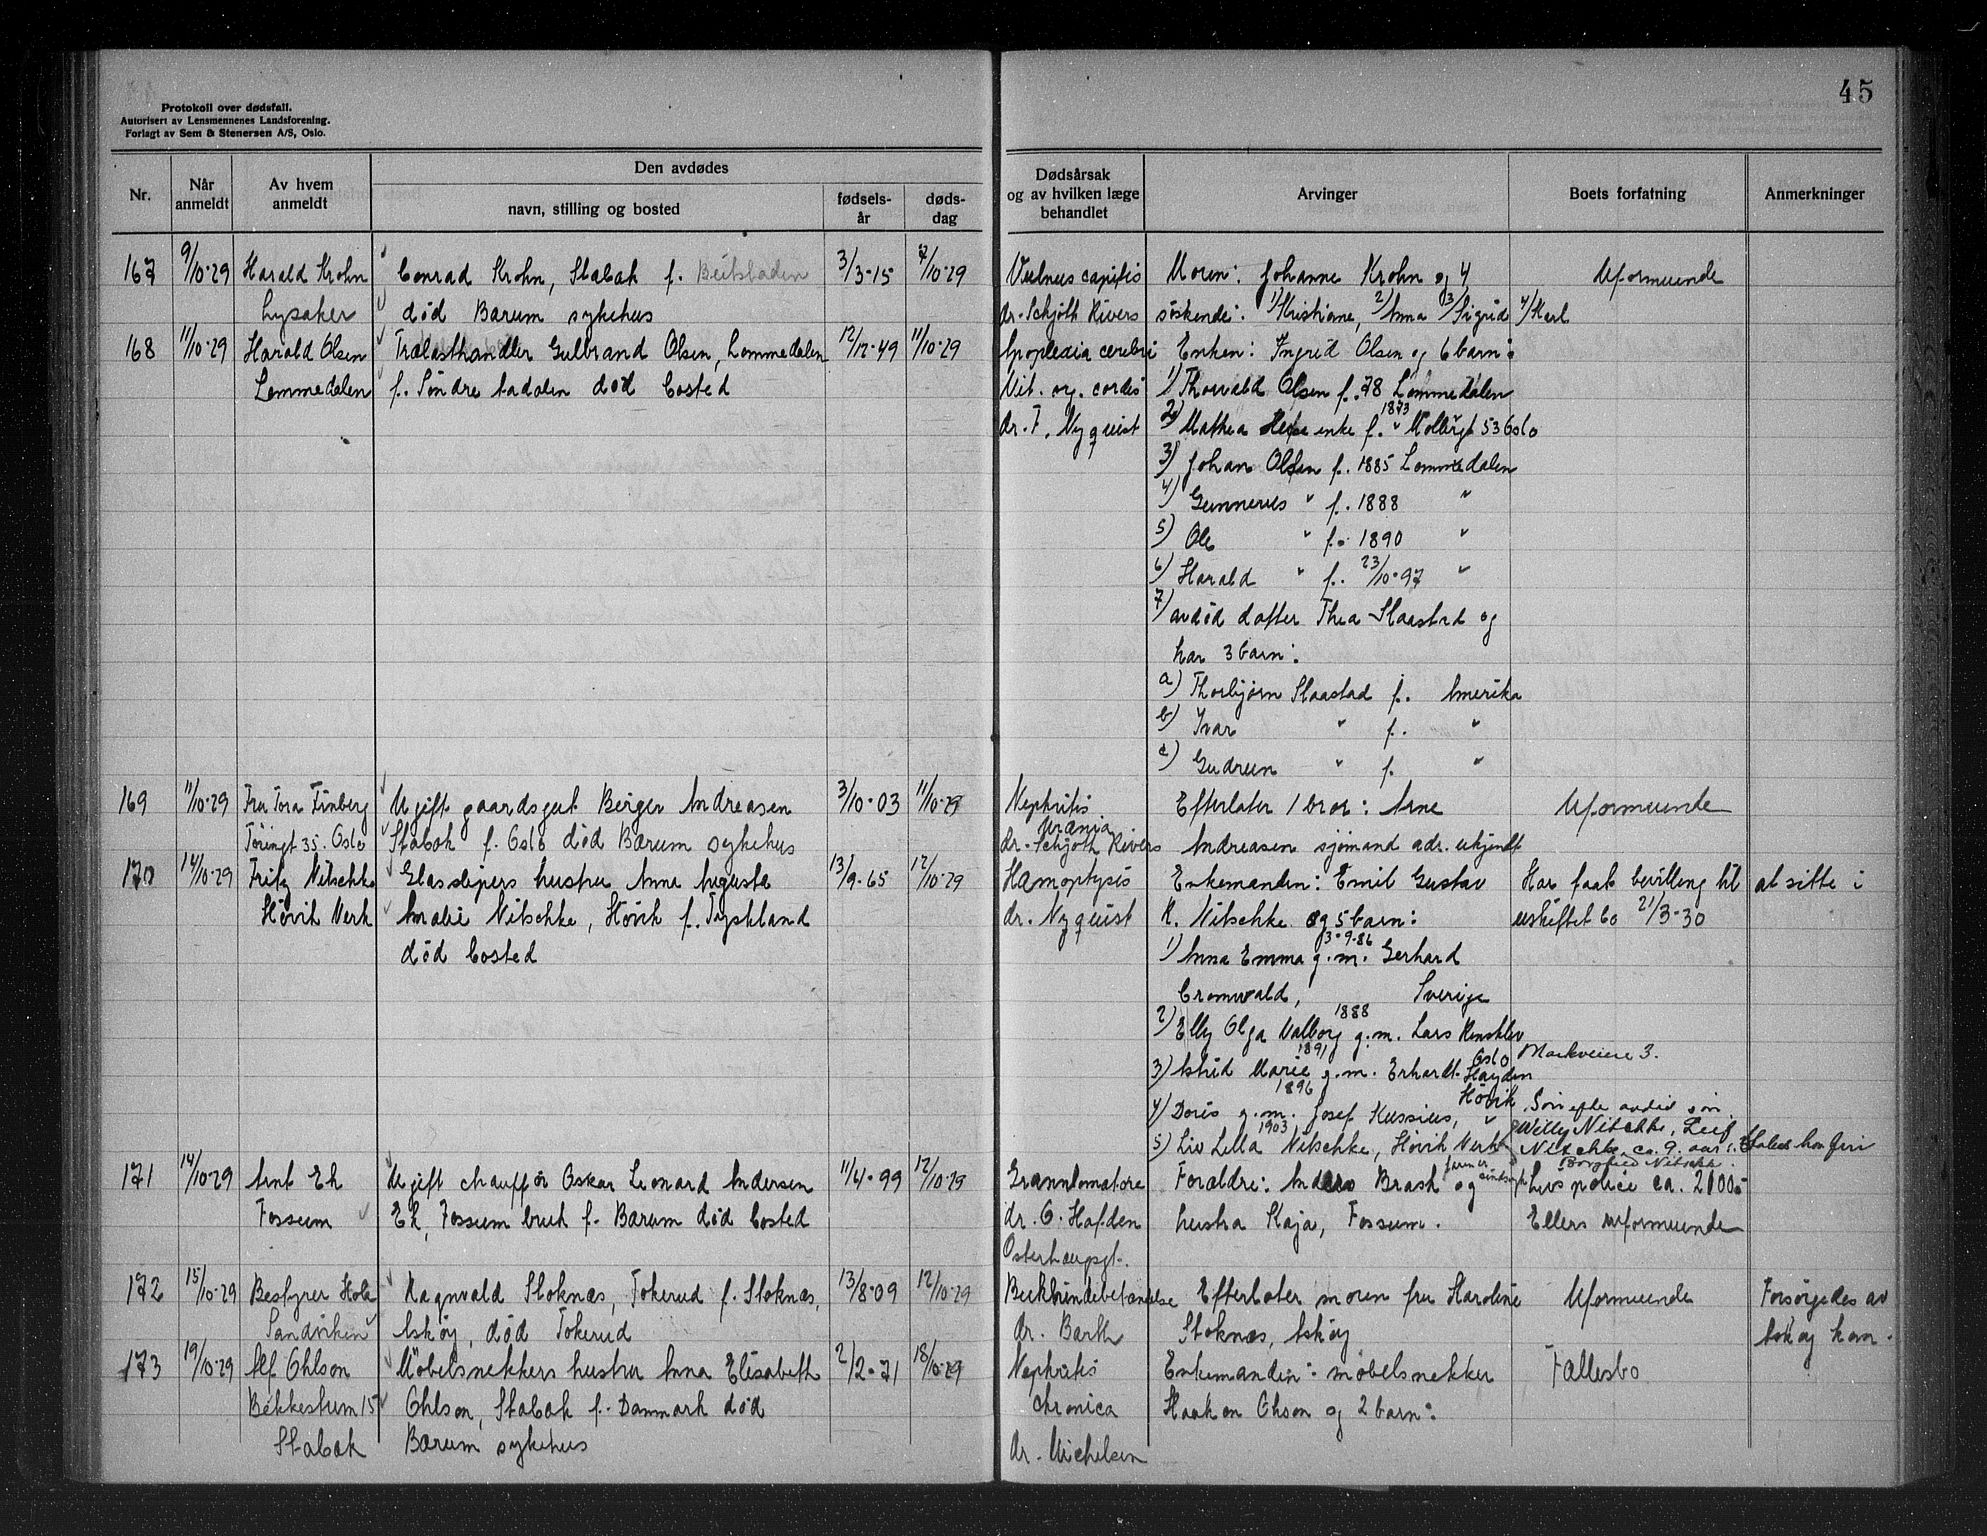 45
Protokoll over dødsfall.
Autorisert av Lensmennenes Landsforening.
Forlagt av Sem & Stenersen A/S, Oslo.
Nr.
Når anmeldt
Av hvem anmeldt
Den avdødes
navn, stilling og bosted
fødsels-år
døds-dag
Dødsårsak og av hvilken læge behandlet
Arvinger
Boets forfatning
Anmerkninger
167 9/10-29 Harald Krohn Conrad Krohn, Stabæk f. Beitstaden 3/3-15 7/10-29 Vulnus capitis Moren: Johanne Krohn og 4 Uformuende
Lysaker død Bærum sykehus dr. Schjøth Rivers søskende: 1) Kristiane, 2) Anna 3) Sigrid 4) Karl
168 11/10-29 Harald Olsen Trælasthandler Gulbrand Olsen, Lommedalen 12/12-49 11/10-29 Apoplexia cerebri Enken: Ingrid Olsen og 6 barn:
Lommedalen f. Søndre Aadalen død bosted Vit. org. cordis 1) Thorvald Olsen f. 78 Lommedalen
dr. F. Nyquist 2) Mathea enke f. 1873 53 Oslo
3) Johan Olsen f. 1885 Lommedalen
4) Gunnerus " f. 1888 "
5) Ole " f. 1890 "
6) Harald " f. 23/10-97 "
7) avdød datter Thea Staastad og
har 3 barn:
a) Thorbjørn Staastad f. Amerika
b) Ivar " f. "
c) Gudrun " f. "
169 11/10-29 Fru Tora Finberg Ugift gaardsgut Birger Andreasen 3/10-03 11/10-29 Nephritis Efterlater 1 bror: Arne Uformuende
35. Oslo Stabæk f. Oslo død Bærum sykehus Uræmia dr. Schjøth Rivers Andreasen sjømand adr. ukjendt
170 14/10-29 Fritz Nitschke Glassslipers hustru Anne Augusta 13/9-65 12/10-29 Hæmoptysis Enkemanden: Emil Gustav Har faat bevilling til at sitte i
Høvik Verk Amalie Nitschke, Høvik f. Tyskland dr. Nyquist K. Nitschke og 5 barn: uskiftet bo 21/3-30
død bosted 1) Anna Emma 3-9-86 g.m. Gerhard
Cromwald, Sverige
2) Elly Olga Valborg 1888 g.m. Lars
3) Astrid Marie 1891 g.m. Erhardt Oslo Markveien 3.
Høvik
4) Doris 1896 g.m. Josef Kussius, " Søn efter avdød søn
Willy Nitschke, Leif
5) Liv Lilla 1903 Nitschke, Høvik Verk Nitschke ca. 9 aar
Borghild Nitschke
171 14/10-29 Arnt Ek Ugift chauffør Oskar Leonard Andersen 11/4-99 12/10-29 Granulomatose Forældre: Anders Brask og Livspolice ca. 2000
Fossum Ek, Fossum bruk f. Bærum død bosted dr. O. Hafden hustru Kaja, Fossum. Ellers uformuende
Osterhausgt.
172 15/10-29 Bestyrer Hola Ragnvald Stoknæs, Tokerud f. Stoknæs, 13/8-09 12/10-29 Bukhindebetændelse Efterlater moren fru Karoline Uformuende Forsørgedes av
Sandviken Askøy, død Tokerud dr. Barth Stoknæs, Askøy Askøy kom.
173 19/10-29 Alf Ohlson Møbelsnekkers hustru Anna Elisabeth 2/2-71 18/10-29 Nephritis Enkemanden: møbelsnekker Fællesbo
Bækkestum 15 Ohlson, Stabæk f. Danmark død chronica Haakon Ohson og 2 barn:
Stabæk Bærum sykehus dr. Michelsen